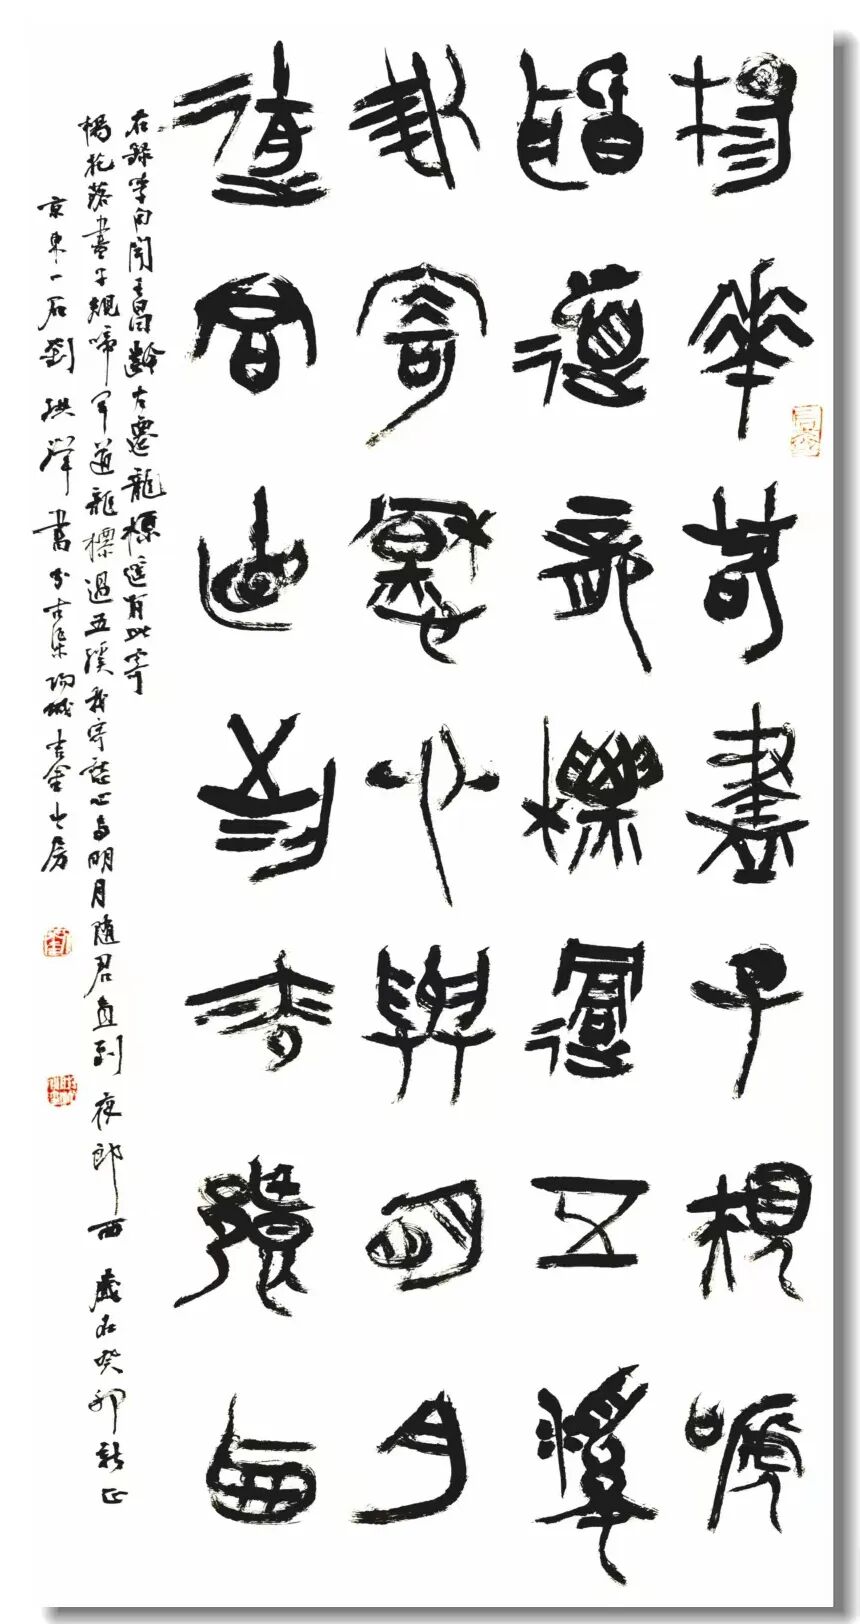 楊華落盡子規嗁
聞道龍標過五溪
我寄愁心與明月
隨君直到夜郎西
右録李白聞王昌齡左遷龍標遥有此寄
楊花落盡子規啼聞道龍標過五溪我寄愁心與明月隨君直到夜郎西歲在癸卯新正
京東一石劉洪書於古渠陽城吉金山房